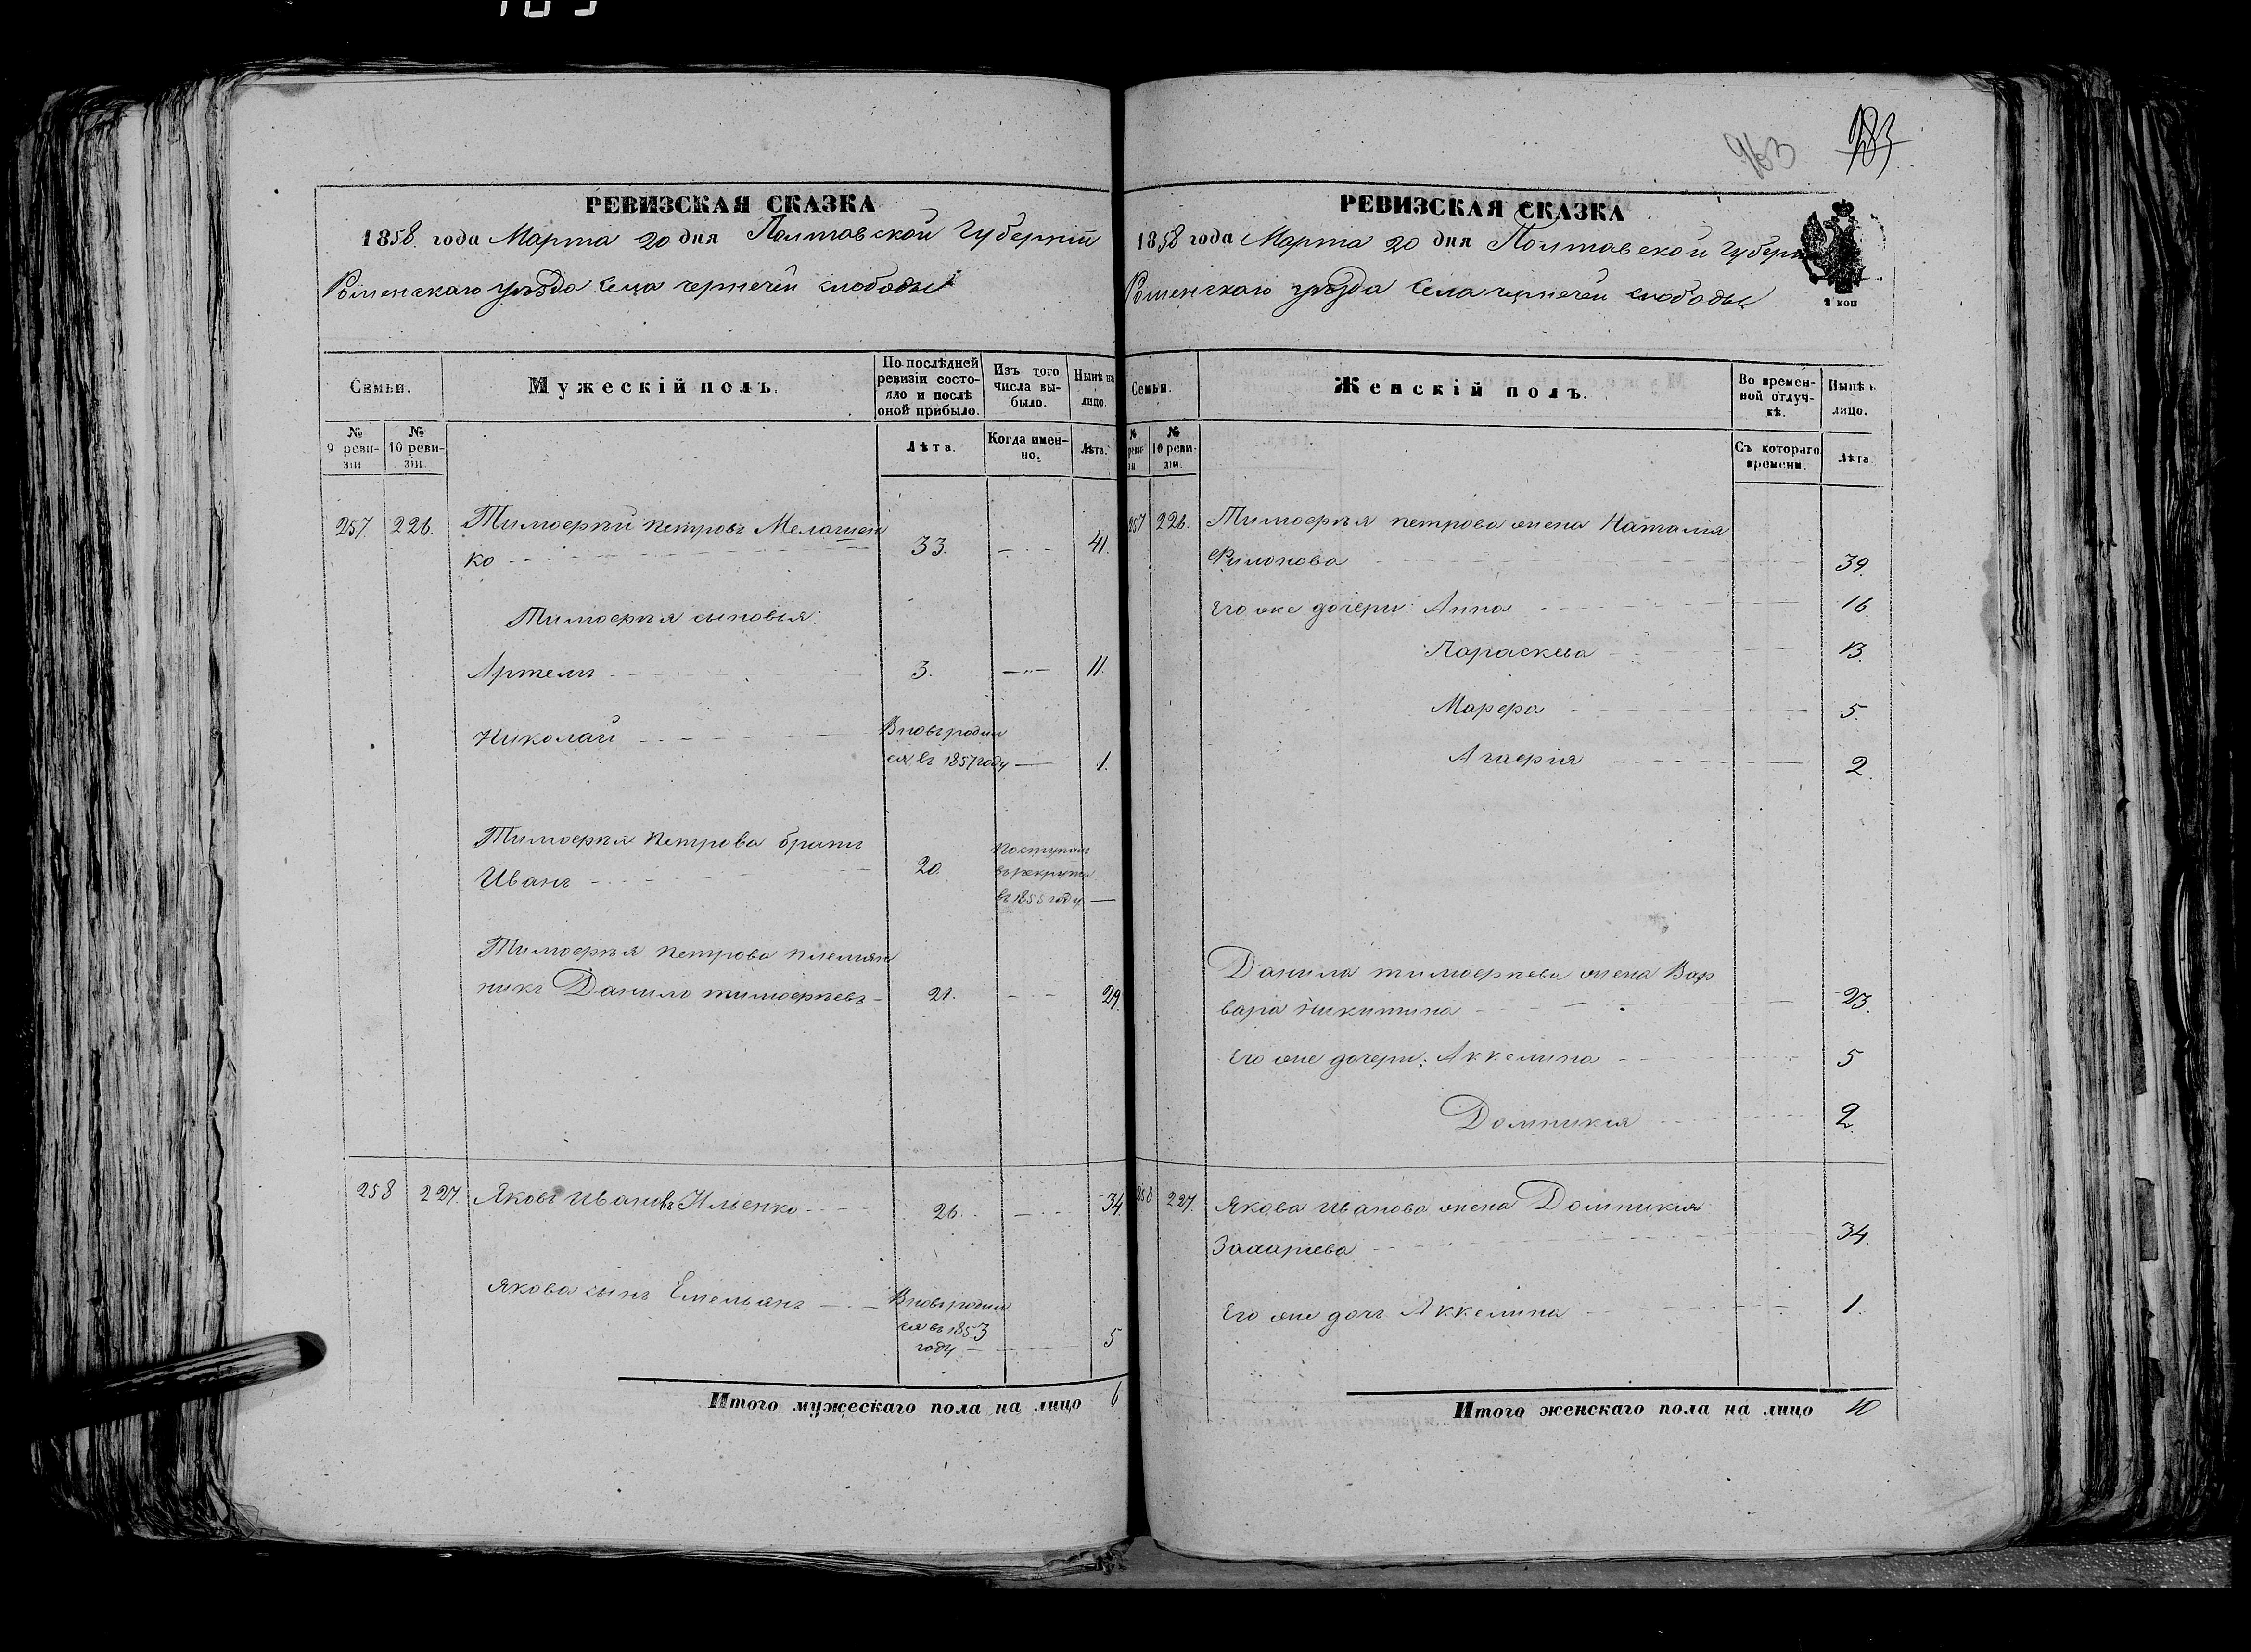 963
РЕВИЗСКАЯ СКАЗКА
1858 года Марта 20 дня Полтавской Губерніи
Роменскаго уѣзда Села чернечей слободы
Семьи.
Мужескій полъ.
По послѣдней ревизіи состояло и послѣ оной прибыло.
Изъ того числа выбыло.
Нынѣ на лицо.
№ 9 ревизіи
№ 10 ревизіи.
Лѣта.
Когда именно.
Лѣта.
257. 226. Тимофѣй петровъ Мелашен
ко 33. 41.
Тимофѣя сыновья:
Артемъ 3. 11.
Николай Вновь родил
ся въ 1857 году 1.
Тимофѣя Петрова братъ
Иванъ 20. Поступилъ
въ рекруты
въ 1855 году
Тимофѣя Петрова племян
никъ Данило тимофѣевъ 21. 29.
258 227. Яковъ Ивановъ Ильенко 26. 34.
Якова сынъ Емельянъ Вновь родил
ся въ 1853
году 5
Итого мужескаго пола на лицо 6
РЕВИЗСКАЯ СКАЗКА
1858 года Марта 20 дня Полтавской Губерн
Роменскаго уѣзда Села чернечей слободы
коп
Семьи.
Женскій полъ.
Во временной отлучкѣ.
Нынѣ н лицо.
№ реви зи
№ 10 ревизіи.
Съ котораго времени.
Лѣта
257 226. Тимофѣя петрова жена Наталия
Филонова 39.
Его же дочери: Анна 16.
Параскева 13.
Марфа 5.
Агафія 2.
Данила тимофѣева жена Вар
вара Никитина 23.
Его же дочери: Аккелина 5
Домникія 2.
258 227. Якова Иванова жена Домникія
Захариева 34.
Его же дочь Аккелина 1.
Итого женскаго пола на лицо 10